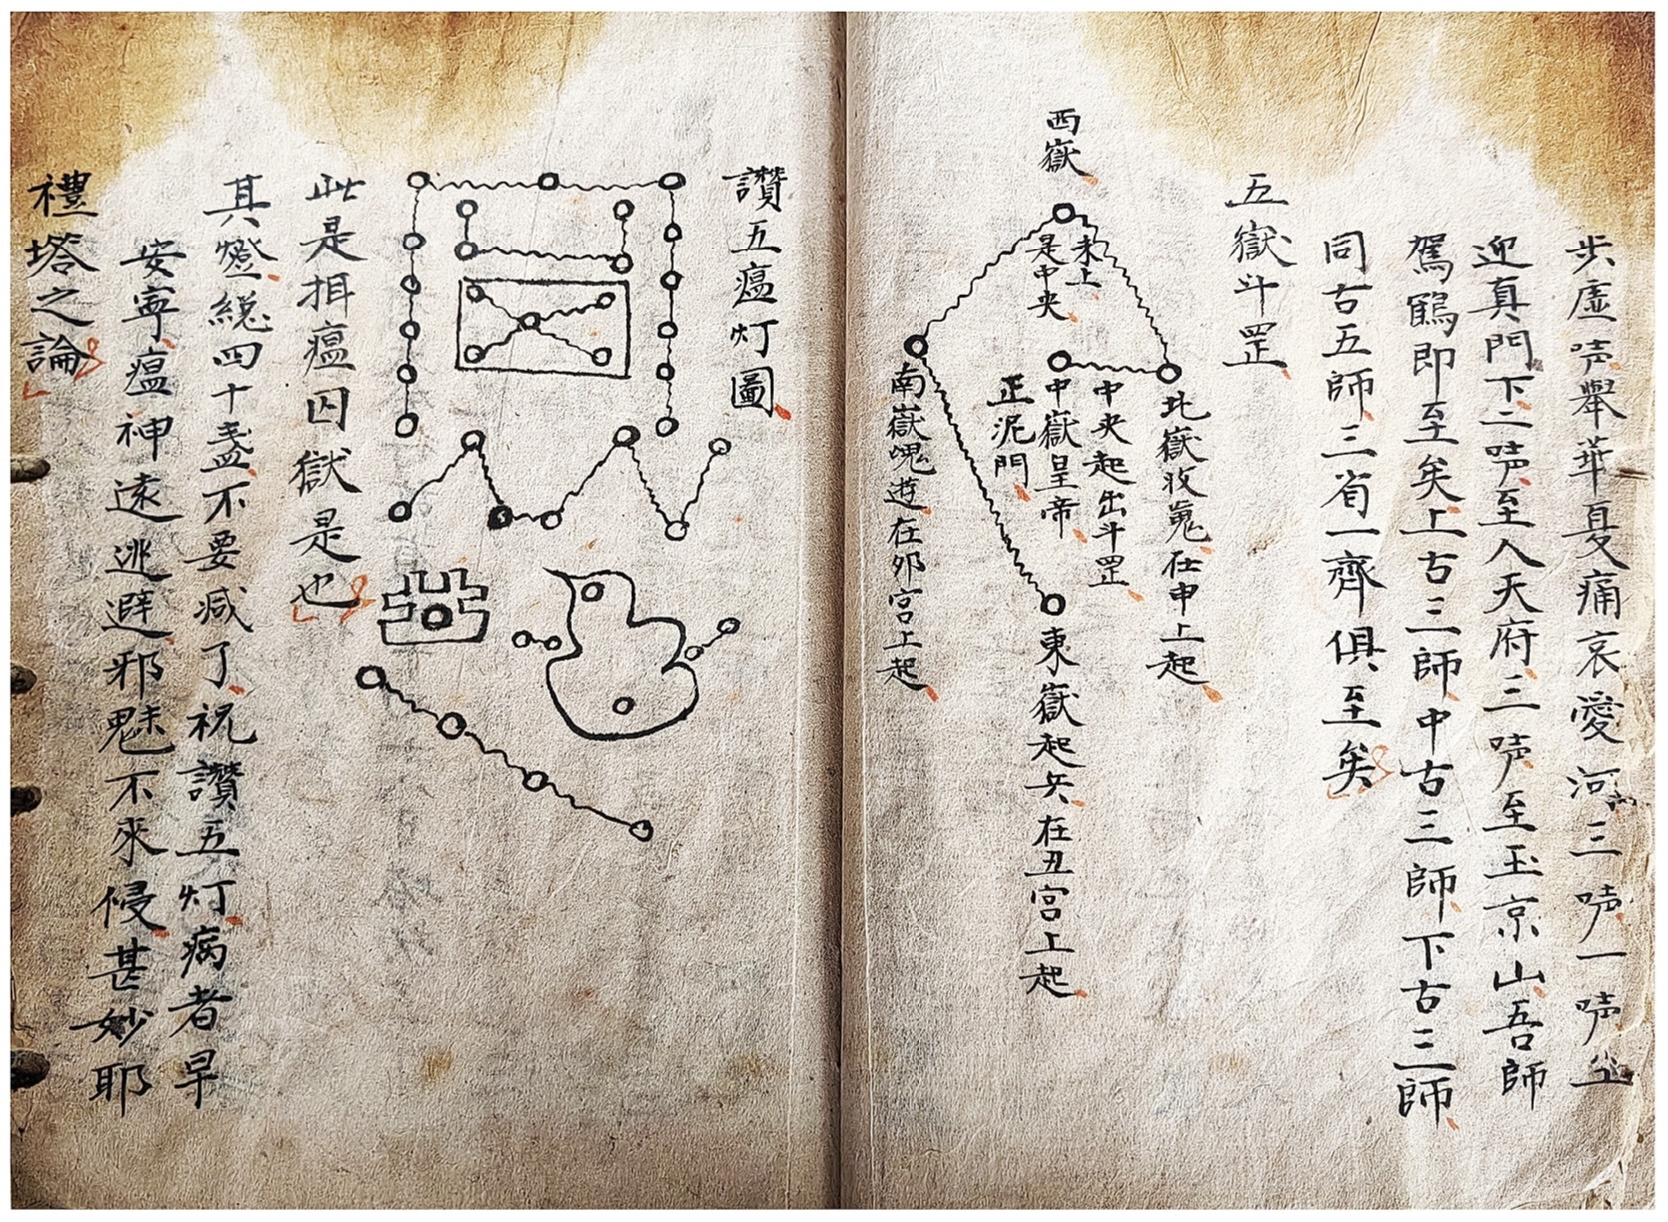 步虛唥舉華夏痛哀愛河三唥一唥並
迎真門下二唥至入天府三唥至玉京山吾師
駕鶴即至矣上古三師中古三師下古三師
同古五師三省一齊俱至矣
五嶽斗罡
西嶽
未上
是中央
北嶽收魂在申上起
中央起出斗罡
中嶽皇帝
正泥門
東嶽起兵在丑宮上起
南嶽魂遊在卯宮上起
讚五瘟灯圖
此是揖瘟囚獄是也
其燈総四十盞不要減了祝讚五灯病者早
安寧瘟神遠逃避邪魅不來侵甚妙耶
禮塔之論